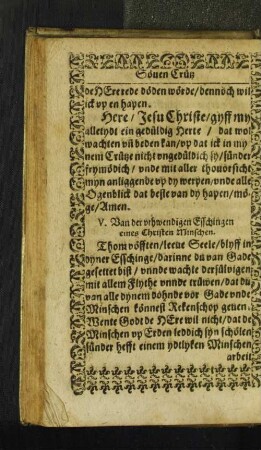 Söuen Crütz
de HEere rede döden wörde / dennoch wil
ick vp en hapen.
Here / Jesu Christe / gyff my
alletydt ein gedüldig Herte / dat wol
wachten vñ beden kan / vp dat ick in my
nem Crütze nicht vngedüldich sy / sünder
frymödich / vnde mit aller thouorsicht
myn anliggende vp dy werpen / vnde alle
Ogenblick dat beste van dy hapen / mö-
ge / Amen.
V. Van der vthwendigen Esschingen
eines Christen Minschen.
Thom vöfften / leeue Seele / blyff in
dyner Esschinge / darinne du van Gade
gesettet bist / vnnde wachte dersüluigen
mit allem Flythe vnnde trüwen / dat du
van alle dynem döhnde vor Gade vnde
Minschen könnest Rekenschop geuen.
Wente Godt de HEre wil nicht / dat de
Minschen vp Erden leddich syn schölen
sünder hefft einem ydtlyken Minschen
arbeit